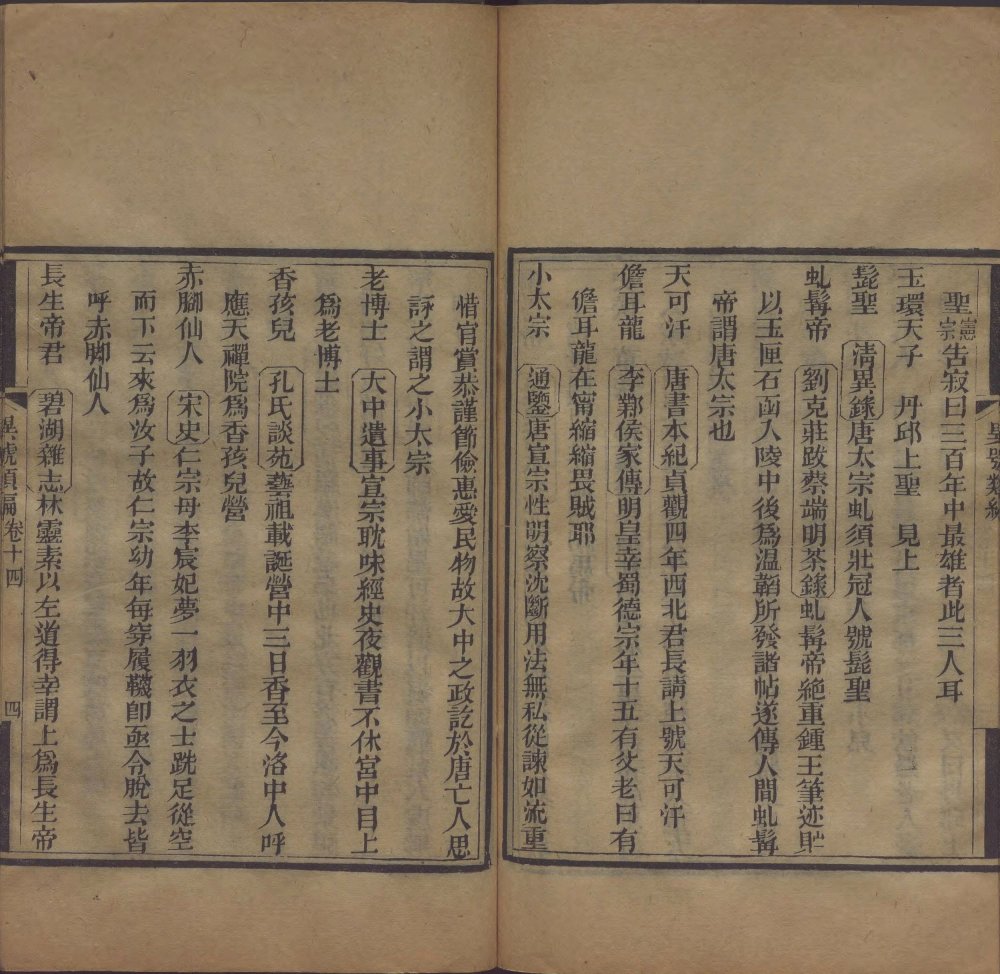 聖憲宗告寂曰三百年中最雄者此三人耳
玉環天子　丹邱上聖　見上
髭聖　清異錄唐太宗虬須壯冠人號髭聖
虬髯帝　劉克莊跋蔡端明茶錄虬髯帝絶重鍾王筆迹貯
以玉匣石函入陵中後爲溫韜所發諧帖遂傳人間虬髯
帝謂唐太宗也
天可汗　唐書本紀貞觀四年西北君長請上號天可汗
儋耳龍　李鄴侯家傳明皇幸蜀德宗年十五有父老曰有
儋耳龍在甯縮縮畏賊耶
小太宗　通鑒唐宣宗性明察沈斷用法無私從諫如流重
惜官賞恭謹節儉惠愛民物故大中之政訖於唐亡人思
詠之謂之小太宗
老博士　大中遺事宣宗耽味經史夜觀書不休宮中目上
爲老博士
香孩兒　孔氏談苑藝祖載誕營中三日香至今洛中人呼
應天禪院爲香孩兒營
赤腳仙人　宋史仁宗母李宸妃夢一羽衣之士跣足從空
而下云來爲汝子故仁宗幼年每穿履韈卽亟令脫去皆
呼赤腳仙人
長生帝君　碧湖雜志林靈素以左道得幸謂上爲長生帝
異號類編卷十四　四